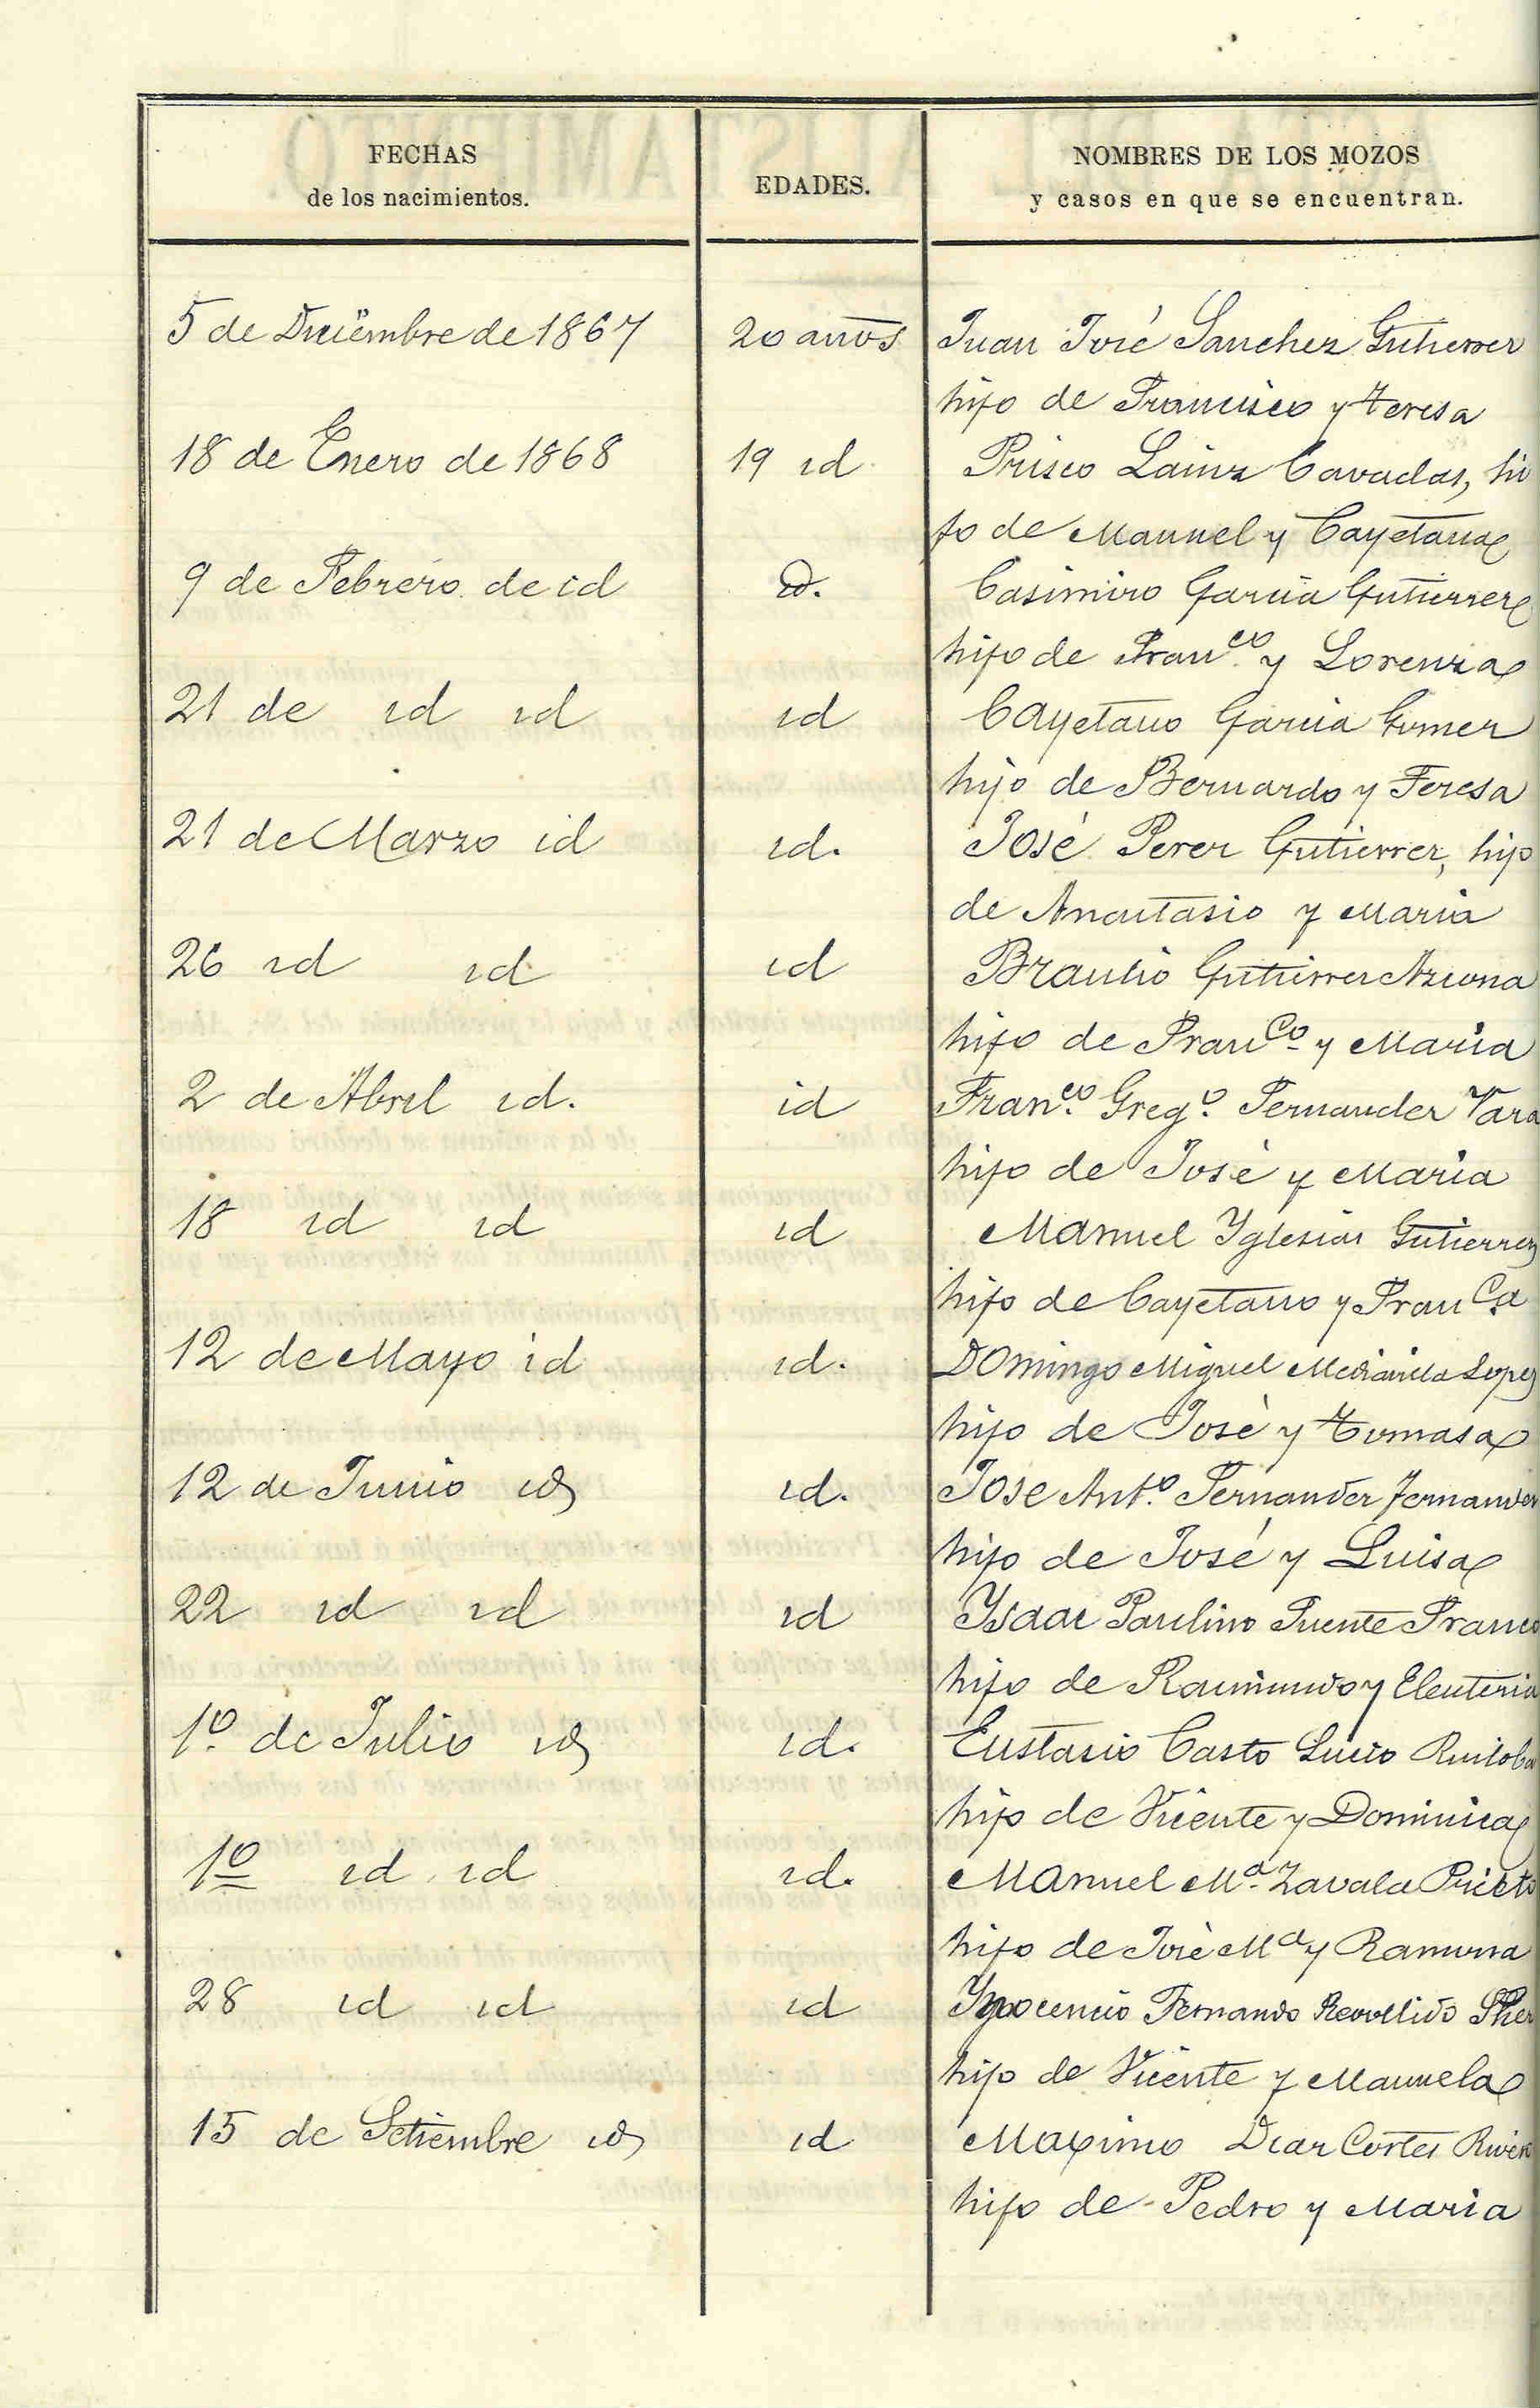 FECHAS
de los nacimientos.
EDADES.
NOMBRES DE LOS MOZOS
y casos en que se encuentran.
5 de Diciembre de 1867 20 años Juan José Sanchez Gutierrez
hijo de Francisco y Teresa
18 de Enero de 1868 19 id Prisco Lainz Cavadas, hi
jo de Manuel y Cayetana
9 de Febrero de id id. Casimiro Garcia Gutierrez
hijo de Franco. y Lorenza
21 de id id id Cayetano Garcia Gomez
hijo de Bernardo y Teresa
21 de Marzo id id. José Perez Gutierrez, hijo
de Anastasio y Maria
26 id id id Braulio Gutierrez Azcona
hijo de Franco y Maria
2 de Abril id. id Franco. Grego. Fernandez Vara
hijo de José y Maria
18 id id id Manuel Yglesias Gutierrez
hijo de Cayetano y Franca
12 de Mayo id id. Domingo Miguel Mediavilla Lopez
hijo de José y Tomasa
12 de Junio id id. Jose Anto. Fernandez Fernandez
hijo de José y Luisa
22 id id id Ysaac Paulino Puente Franco
hijo de Raimundo y Eleuteria
1o. de Julio id id. Eustasio Casto Lucio Ruiloba
hijo de Vicente y Dominica
1o id id id. Manuel Ma. Zavala Prieto
hijo de José Ma y Ramona
28 id id id Ynocencio Fernando Revollido
hijo de Vicente y Manuela
15 de Setiembre id id Maximo Diaz Cortes
hijo de Pedro y Maria